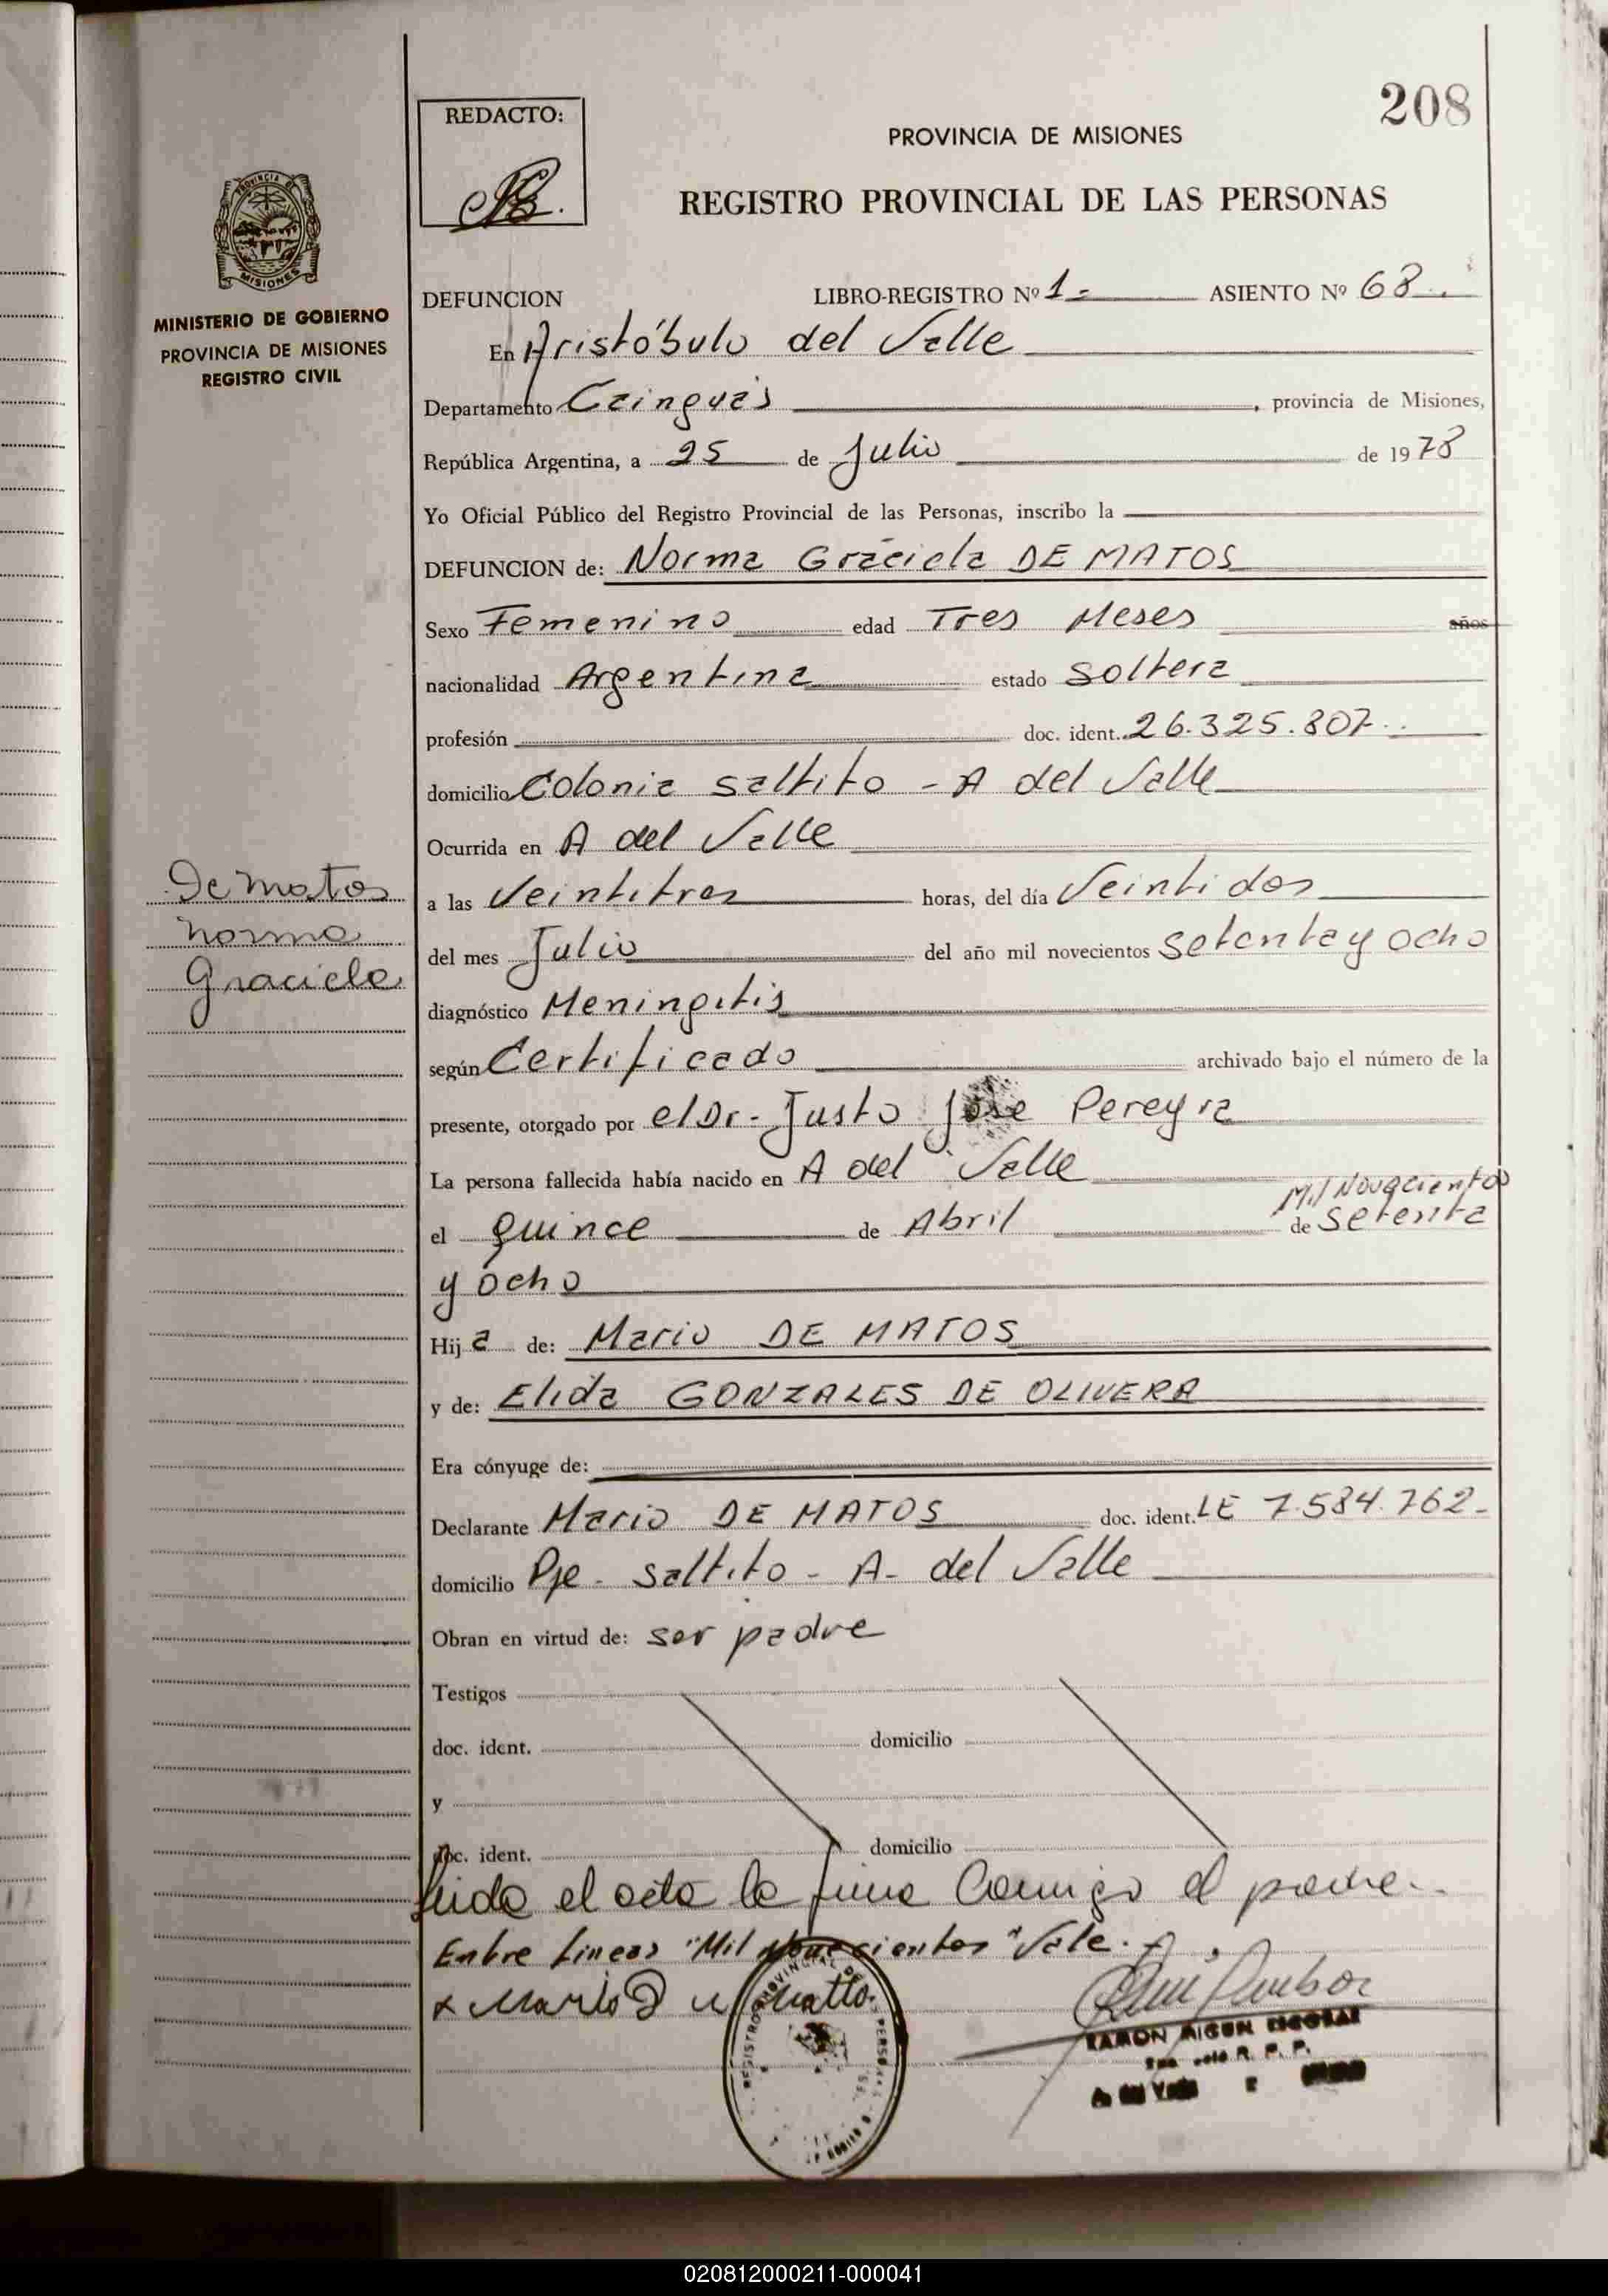 208
REDACTO:
PROVINCIA DE MISIONES
REGISTRO PROVINCIAL DE LAS PERSONAS
PROVINCIA DE
MISIONES
MINISTERIO DE GOBIERNO
PROVINCIA DE MISIONES
REGISTRO CIVIL
DEFUNCION LIBRO-REGISTRO Nº 1- ASIENTO Nº 68
En Aristóbulo del Valle
Departamento Cainguás, provincia de Misiones,
República Argentina, a 25 de Julio de 1978
Yo Oficial Público del Registro Provincial de las Personas, inscribo la
DEFUNCION de: Norma Graciela DE MATOS
Sexo Femenino edad Tres Meses años
nacionalidad Argentina estado soltera
profesión doc. ident. 26.325.807
domicilio Colonia saltito - A del Valle
Ocurrida en A del Valle
De Matos
Norma
Graciela
a las Veintitres horas, del día Veintidos
del mes Julio del año mil novecientos setenta y ocho
diagnóstico Meningitis
según Certificado archivado bajo el número de la
presente, otorgado por el Dr- Justo José Pereyra
La persona fallecida había nacido en A del Valle
Mil Novecientos
el quince de Abril de setenta
y ocho
Hij a de: Mario DE MATOS
y de: Elida GONZALES DE OLIVERA
Era cónyuge de:
Declarante Mario DE MATOS doc. ident. LE 7.584.762-
domicilio Pje - saltito - A- del Valle
Obran en virtud de: ser padre
Testigos
doc. ident. domicilio
y
doc. ident. domicilio
leida el acta la firma Conmigo el padre.
Entre Lineas "Mil Novecientos" Vale.
x Mario D
REGISTRO PROVINCIAL DE
RAMON
R. P. P.
A. del Valle
020812000211-000041